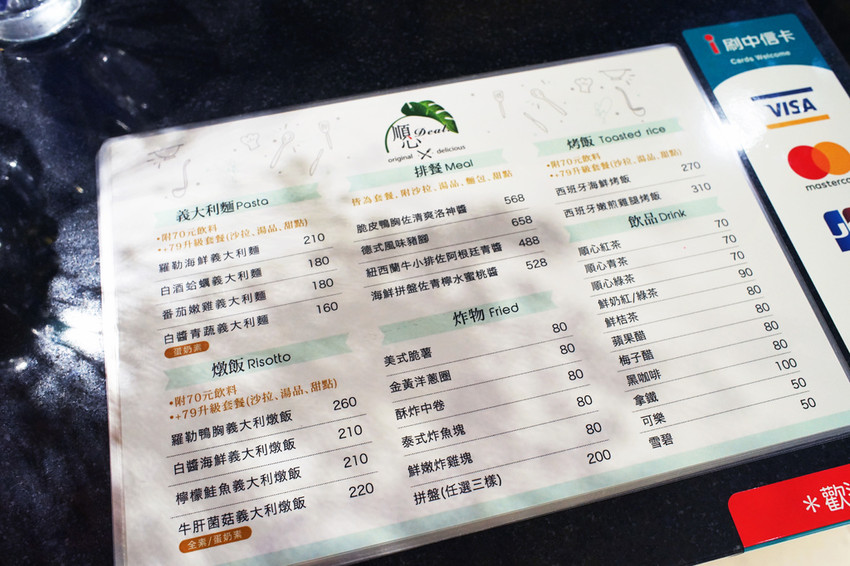 刷中信卡
Cards Welcome
VISA
順心 Deal
original × delicious
義大利麵 Pasta
•附70元飲料
•+79升級套餐(沙拉、湯品、甜點)
羅勒海鮮義大利麵 210
白酒蛤蠣義大利麵 180
番茄嫩雞義大利麵 180
白醬青蔬義大利麵 160
蛋奶素
燉飯 Risotto
•附70元飲料
•+79升級套餐(沙拉、湯品、甜點)
羅勒鴨胸義大利燉飯 260
白醬海鮮義大利燉飯 210
檸檬鮭魚義大利燉飯 210
牛肝菌菇義大利燉飯 220
全素/蛋奶素
排餐 Meal
皆為套餐,附沙拉、湯品、麵包、甜點
脆皮鴨胸佐清爽洛神醬 568
德式風味豬腳 658
紐西蘭牛小排佐阿根廷青醬 488
海鮮拼盤佐青檸水蜜桃醬 528
炸物 Fried
美式脆薯 80
金黃洋蔥圈 80
酥炸中卷 80
泰式炸魚塊 80
鮮嫩炸雞塊 80
拼盤(任選三樣) 200
烤飯 Toasted rice
•附70元飲料
•+79升級套餐(沙拉、湯品、甜點)
西班牙海鮮烤飯 270
西班牙嫩煎雞腿烤飯 310
飲品 Drink
順心紅茶 70
順心青茶 70
順心綠茶 70
鮮奶紅/綠茶 90
鮮桔茶 80
蘋果醋 80
梅子醋 80
黑咖啡 80
拿鐵 100
可樂 50
雪碧 50
*歡